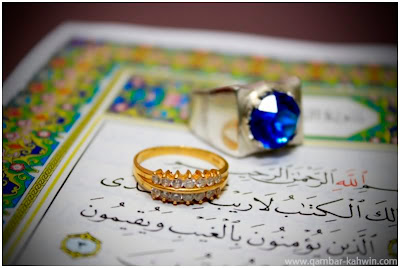 ٱللَّهِ ٱلرَّحْمَٰنِ ٱلرَّحِيمِ
ٱلْكِتَٰبُ لَا رَيْبَ
ٱلَّذِينَ يُؤْمِنُونَ بِٱلْغَيْبِ وَيُقِيمُونَ
www.gambar-kahwin.com